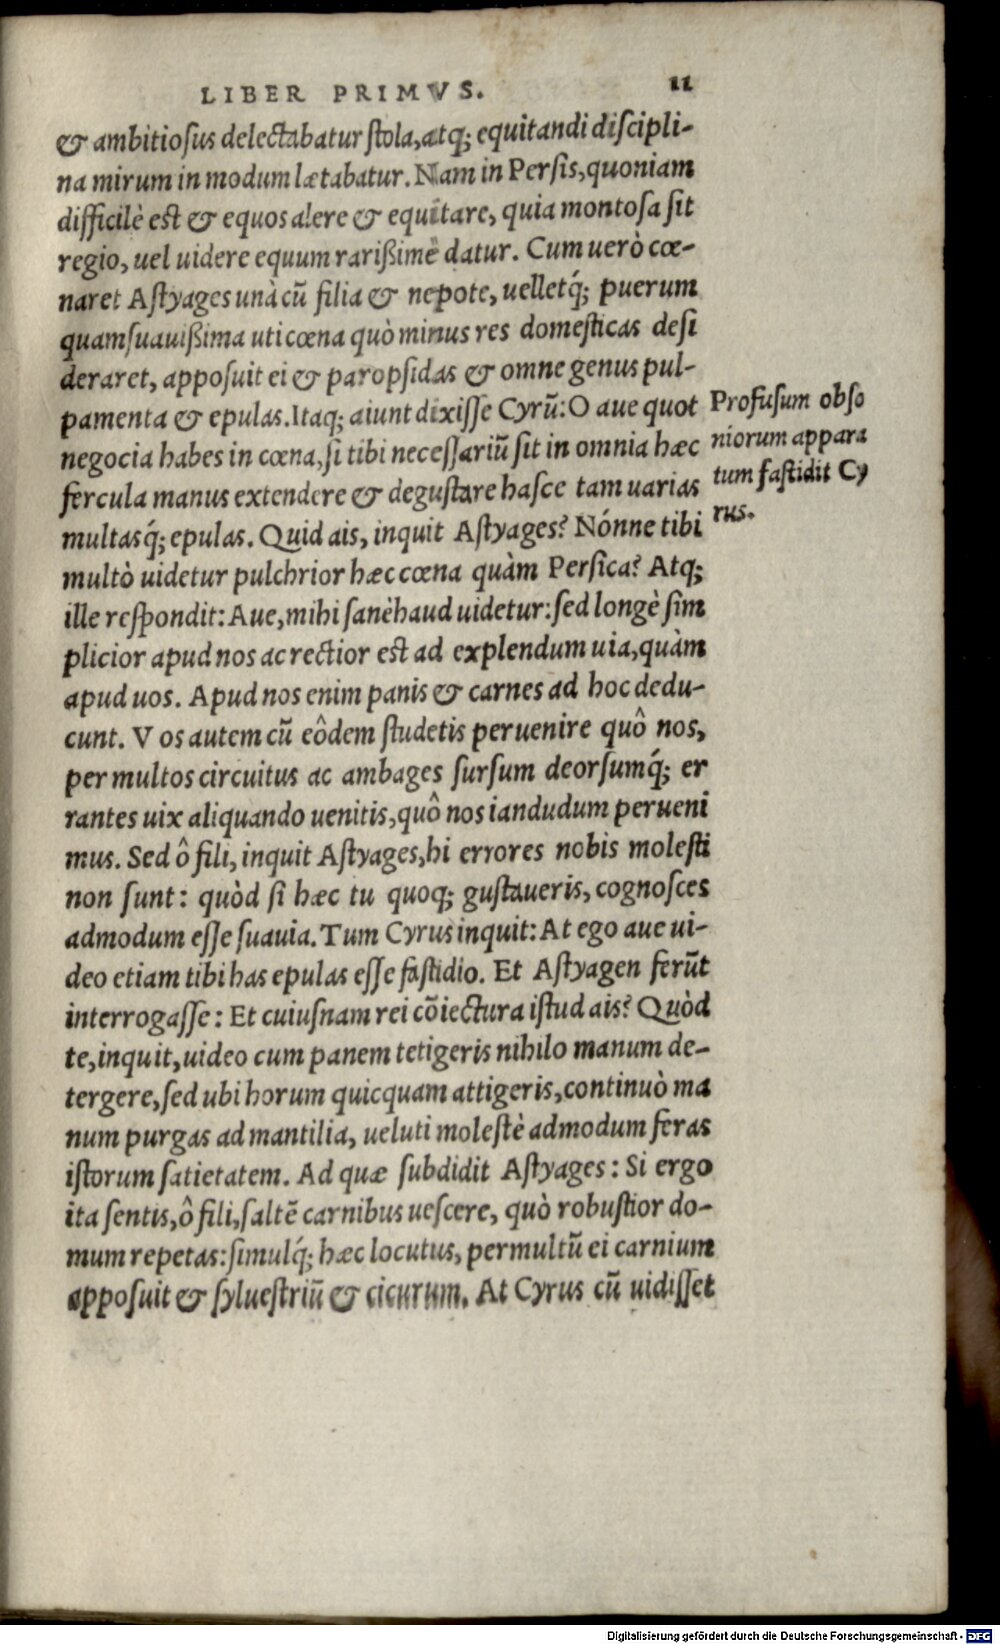 LIBER PRIMVS. 11
& ambitioſus delectabatur ſtola, atq; equitandi diſcipli-
na mirum in modum lætabatur. Nam in Perſis, quoniam
difficilè eſt & equos alere & equitare, quia montoſa ſit
regio, uel uidere equum rarißimè datur. Cum uerò cœ-
naret Aſtyages unà cũ filia & nepote, uelletq́; puerum
quamſuauißima uti cœna quò minus res domeſticas deſi
deraret, appoſuit ei & paropſidas & omne genus pul-
pamenta & epulas. Itaq; aiunt dixiſſe Cyrũ: O aue quot
negocia habes in cœna, ſi tibi neceſſariũ ſit in omnia hæc
fercula manus extendere & deguſtare haſce tam uarias
multasq́; epulas. Quid ais, inquit Aſtyages? Nónne tibi
multò uidetur pulchrior hæc cœna quàm Perſica? Atq;
ille reſpondit: Aue, mihi ſanè haud uidetur: ſed longè ſim
plicior apud nos ac rectior eſt ad explendum uia, quàm
apud uos. Apud nos enim panis & carnes ad hoc dedu-
cunt. Vos autem cũ eôdem ſtudetis peruenire quô nos,
per multos circuitus ac ambages ſurſum deorſumq́; er
rantes uix aliquando uenitis, quô nos iandudum perueni
mus. Sed ô fili, inquit Aſtyages, hi errores nobis moleſti
non ſunt: quòd ſi hæc tu quoq; guſtaueris, cognoſces
admodum eſſe ſuauia. Tum Cyrus inquit: At ego aue ui-
deo etiam tibi has epulas eſſe faſtidio. Et Aſtyagen ferũt
interrogaſſe: Et cuiuſnam rei cõiectura iſtud ais? Quòd
te, inquit, uideo cum panem tetigeris nihilo manum de-
tergere, ſed ubi horum quicquam attigeris, continuò ma
num purgas ad mantilia, ueluti moleſtè admodum feras
iſtorum ſatietatem. Ad quæ ſubdidit Aſtyages: Si ergo
ita ſentis, ô fili, ſaltẽ carnibus ueſcere, quò robuſtior do-
mum repetas: ſimulq́; hæc locutus, permultũ ei carnium
appoſuit & ſylueſtriũ & cicurum. At Cyrus cũ uidiſſet
Profuſum obſo
niorum appara
tum faſtidit Cy
rus.
Digitalisierung gefördert durch die Deutsche Forschungsgemeinschaft - DFG